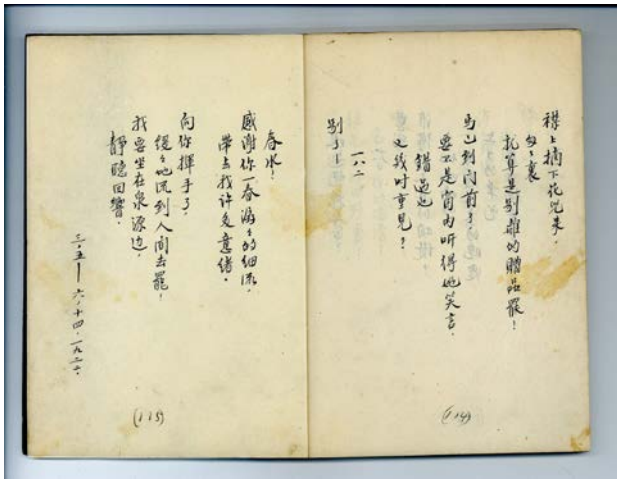 襟上摘下花兒来，
匆匆裏
就算是别離的贈品罷！
馬已到门前了，
要不是窗内听得她笑言，
錯過也
又幾时重見？
一八二
别了！
(114)
春水！
感謝你一春潺潺的细流，
帶去我許多意緒。
向你揮手了，
缓缓地流到人间去罷！
我要坐在泉源边，
靜聽回響。
三，五——六，十四，一九二二。
(115)